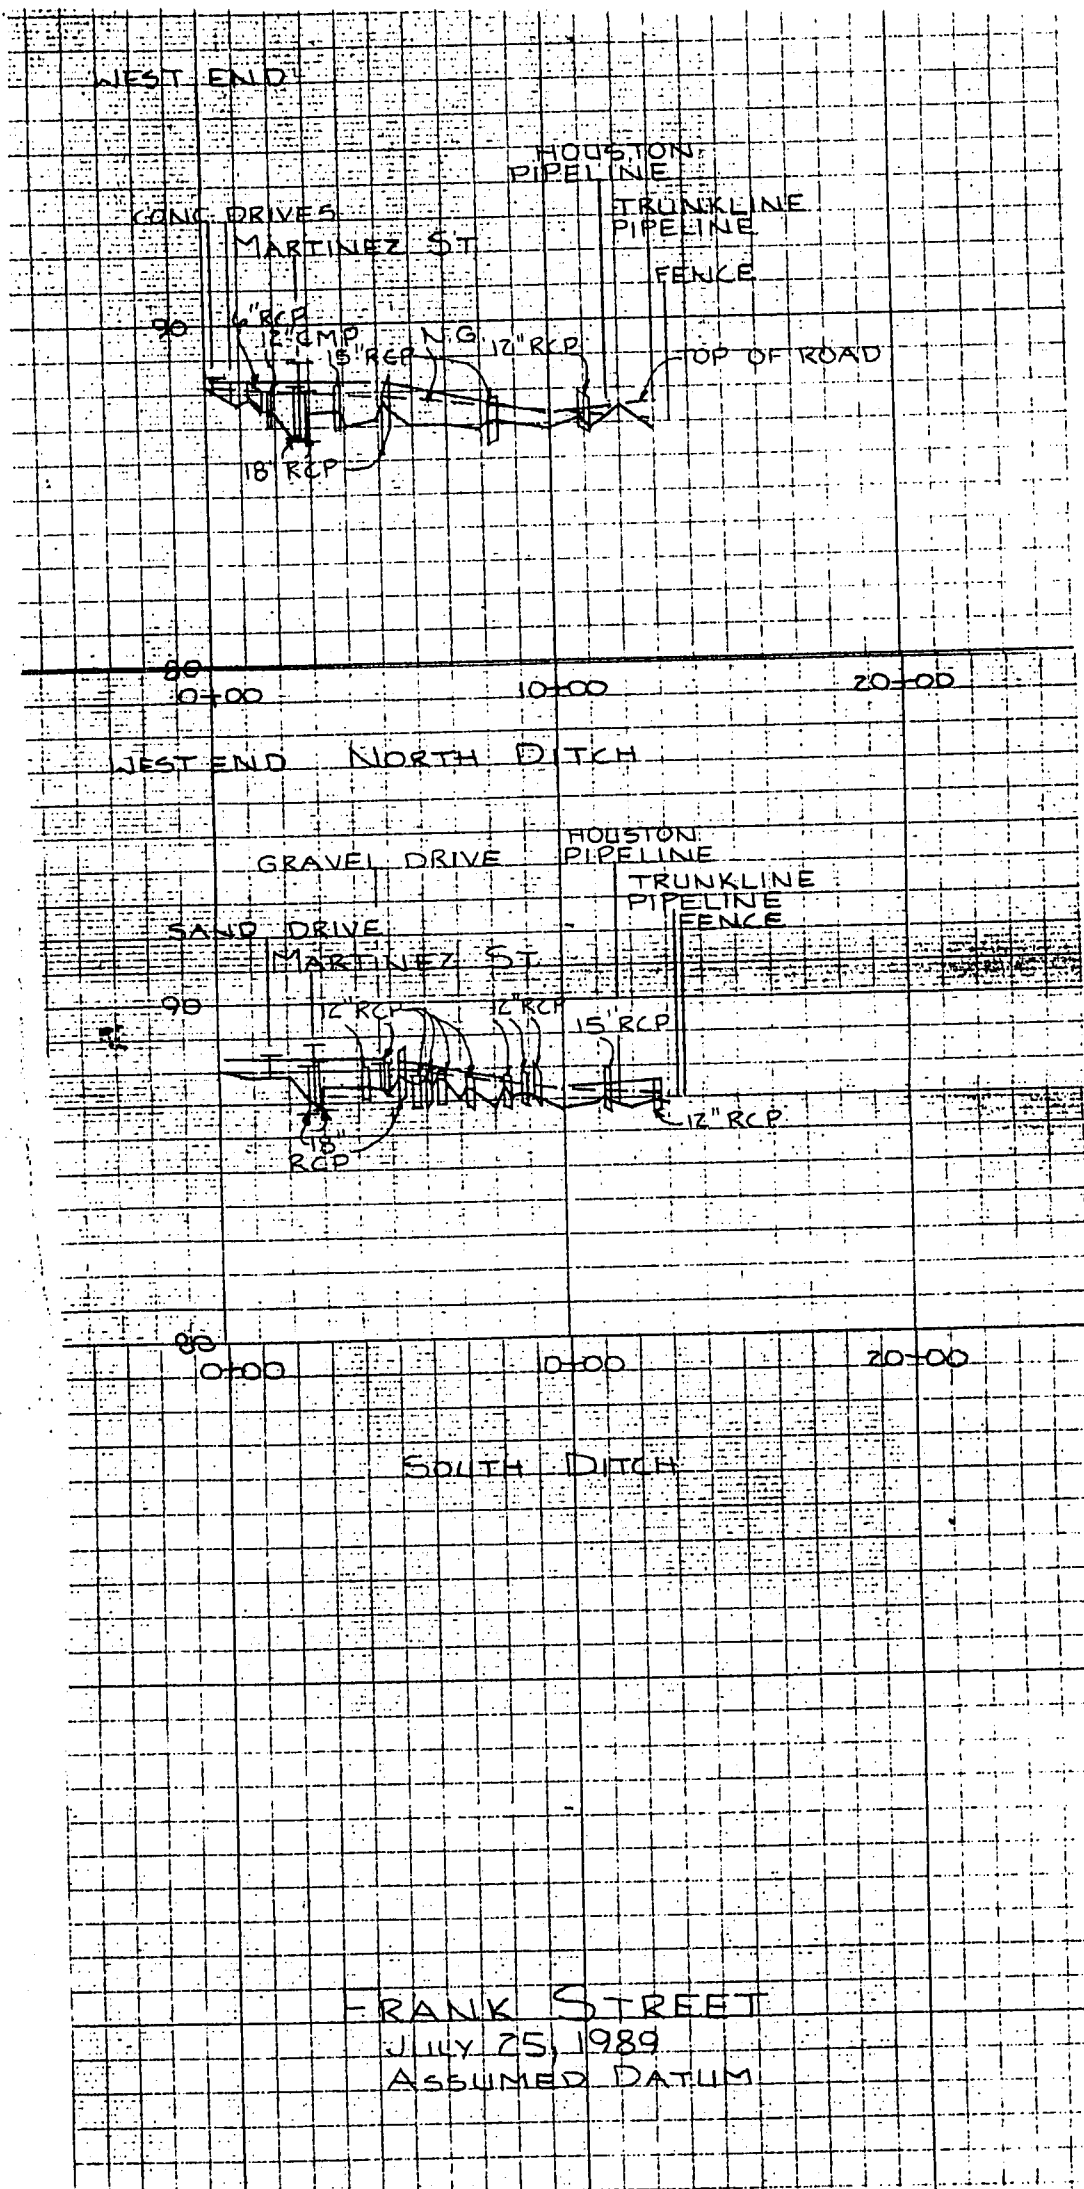 WEST END
HOUSTON
PIPELINE
TRUNKLINE
PIPELINE
CONC. DRIVES
MARTINEZ ST.
FENCE
90
6"RCP
12"CMP
15"RCP
N.G.
12"RCP
TOP OF ROAD
18" RCP
80
0+00
10+00
20+00
WEST END NORTH DITCH
GRAVEL DRIVE
HOUSTON
PIPELINE
TRUNKLINE
PIPELINE
FENCE
SAND DRIVE
MARTINEZ ST.
90
12"RCP
12"RCP
15"RCP
12"RCP
18"
RCP
80
0+00
10+00
20+00
SOUTH DITCH
FRANK STREET
JULY 25, 1989
ASSUMED DATUM